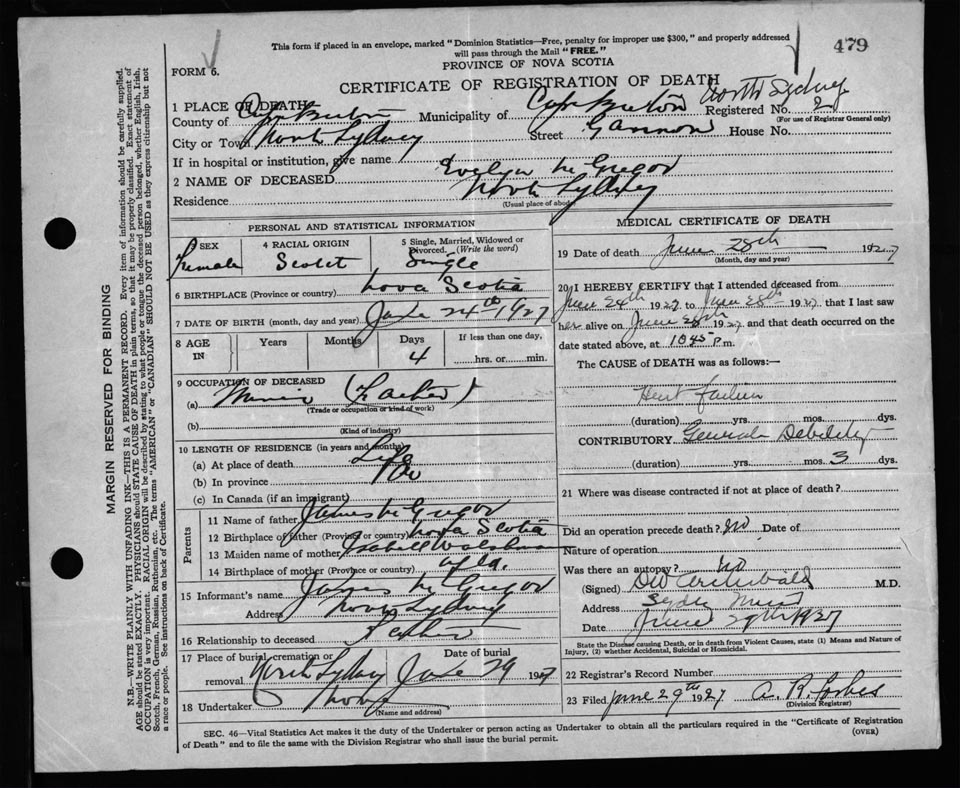 This form if placed in an envelope, marked "Dominion Statistics—Free, penalty for improper use $300," and properly addressed
will pass through the Mail "FREE."
479
PROVINCE OF NOVA SCOTIA
FORM 6.
CERTIFICATE OF REGISTRATION OF DEATH
North Sydney
1 PLACE OF DEATH:
County of Cape Breton Municipality of Cape Breton Registered No. 2
(For use of Registrar General only)
City or Town North Sydney Street Gannon House No.
If in hospital or institution, give name
2 NAME OF DECEASED Evelyn McGregor
Residence North Sydney
(Usual place of abode)
PERSONAL AND STATISTICAL INFORMATION
SEX Female
4 RACIAL ORIGIN Scotct
5 Single, Married, Widowed or Divorced. (Write the word) Single
6 BIRTHPLACE (Province or country) Nova Scotia
7 DATE OF BIRTH (month, day and year) June 24th 1927
8 AGE IN Years Months Days 4 If less than one day, hrs. or min.
9 OCCUPATION OF DECEASED
(a) (Father)
(Trade or occupation or kind of work)
(b)
(Kind of industry)
10 LENGTH OF RESIDENCE (in years and months)
(a) At place of death Life
(b) In province Do
(c) In Canada (if an immigrant)
Parents
11 Name of father James McGregor
12 Birthplace of father (Province or country) Nova Scotia
13 Maiden name of mother Isabell
14 Birthplace of mother (Province or country)
15 Informant's name James McGregor
Address North Sydney
16 Relationship to deceased Father
17 Place of burial, cremation or removal North Sydney Date of burial June 29 1927
18 Undertaker
(Name and address)
MEDICAL CERTIFICATE OF DEATH
19 Date of death June 28th 1927
(Month, day and year)
20 I HEREBY CERTIFY that I attended deceased from
June 24th 1927 to June 28th 1927 that I last saw
her alive on June 28th 1927 and that death occurred on the
date stated above, at 1045 P.m.
The CAUSE OF DEATH was as follows:—
Heart Failure
(duration) yrs. mos. dys.
CONTRIBUTORY General Debility
(duration) yrs. mos. 3 dys.
21 Where was disease contracted if not at place of death?
Did an operation precede death? No Date of
Nature of operation
Was there an autopsy? No
(Signed) DW Archibald M.D.
Address Sydney Mines
Date June 29th 1927
State the Disease causing Death, or in death from Violent Causes, state (1) Means and Nature of
Injury, (2) whether Accidental, Suicidal or Homicidal.
22 Registrar's Record Number
23 Filed June 29th 1927 A. R. Forbes
(Division Registrar)
SEC. 46—Vital Statistics Act makes it the duty of the Undertaker or person acting as Undertaker to obtain all the particulars required in the "Certificate of Registration
of Death" and to file the same with the Division Registrar who shall issue the burial permit.
(OVER)
MARGIN RESERVED FOR BINDING
N.B.—WRITE PLAINLY WITH UNFADING INK—THIS IS A PERMANENT RECORD. Every item of information should be carefully supplied.
AGE should be stated EXACTLY. PHYSICIANS should STATE CAUSE OF DEATH in plain terms, so that it may be properly classified. Exact statement of
OCCUPATION is very important. RACIAL ORIGIN will be described by stating to what people or tongue the deceased person belonged, whether English, Irish,
Scotch, French, German, Russian, Ruthenian, etc. The terms "AMERICAN" or "CANADIAN" SHOULD NOT BE USED as they express citizenship but not
a race or people. See instructions on back of Certificate.